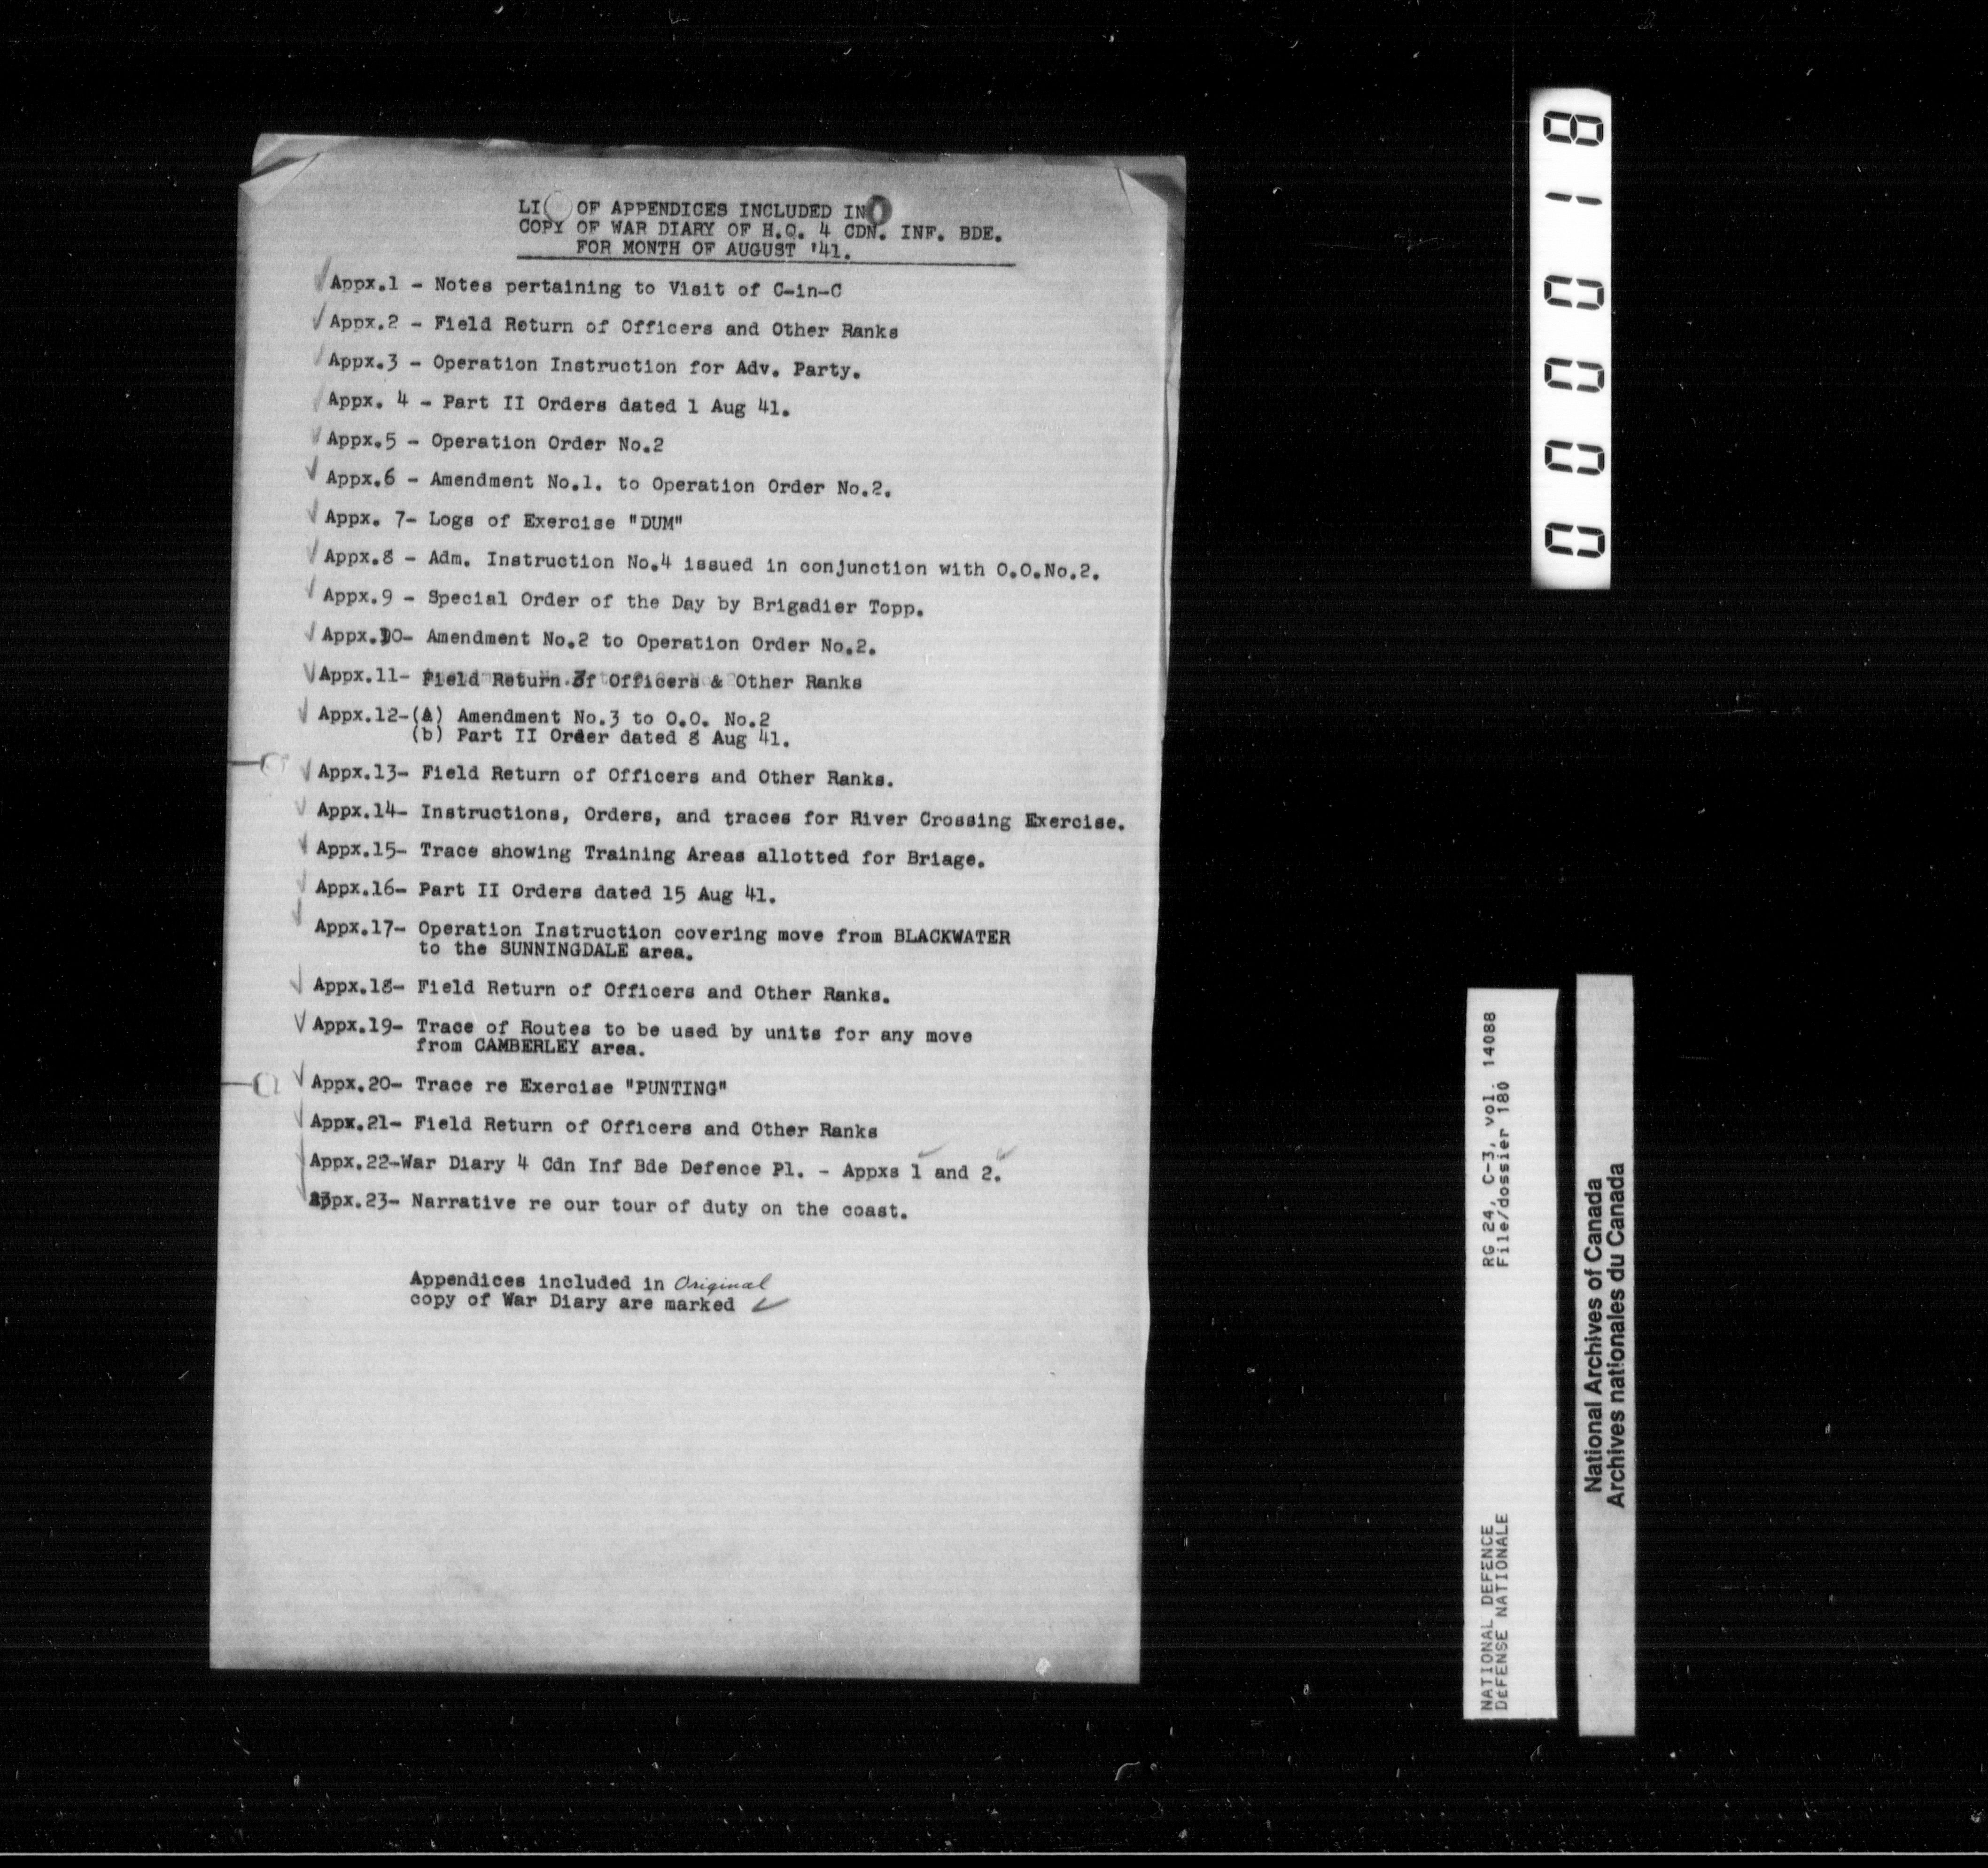 LI OF APPENDICES INCLUDED IN
COPY OF WAR DIARY OF H.Q. 4 CDN. INF. BDE.
FOR MONTH OF AUGUST '41.
Appx.1 - Notes pertaining to Visit of C-in-C
Appx.2 - Field Return of Officers and Other Ranks
Appx.3 - Operation Instruction for Adv. Party.
Appx. 4 - Part II Orders dated 1 Aug 41.
Appx.5 - Operation Order No.2
Appx.6 - Amendment No.1. to Operation Order No.2.
Appx. 7- Logs of Exercise "DUM"
Appx.8 - Adm. Instruction No.4 issued in conjunction with O.O.No.2.
Appx.9 - Special Order of the Day by Brigadier Topp.
Appx.10- Amendment No.2 to Operation Order No.2.
Appx.11- Field Return of Officers & Other Ranks
Appx.12-(A) Amendment No.3 to O.O. No.2
(b) Part II Order dated 8 Aug 41.
Appx.13- Field Return of Officers and Other Ranks.
Appx.14- Instructions, Orders, and traces for River Crossing Exercise.
Appx.15- Trace showing Training Areas allotted for Briage.
Appx.16- Part II Orders dated 15 Aug 41.
Appx.17- Operation Instruction covering move from BLACKWATER
to the SUNNINGDALE area.
Appx.18- Field Return of Officers and Other Ranks.
Appx.19- Trace of Routes to be used by units for any move
from CAMBERLEY area.
Appx.20- Trace re Exercise "PUNTING"
Appx.21- Field Return of Officers and Other Ranks
Appx.22-War Diary 4 Cdn Inf Bde Defence Pl. - Appxs 1 and 2.
Appx.23- Narrative re our tour of duty on the coast.
Appendices included in Original
copy of War Diary are marked ✓
000018
RG 24, C-3, vol. 14088
File/dossier 180
NATIONAL DEFENCE
DEFENSE NATIONALE
National Archives of Canada
Archives nationales du Canada